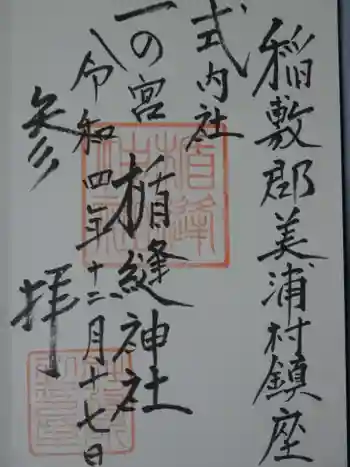 稲敷郡美浦村鎮座
式内社
一の宮 楯縫神社
令和四年十二月十七日
参拝